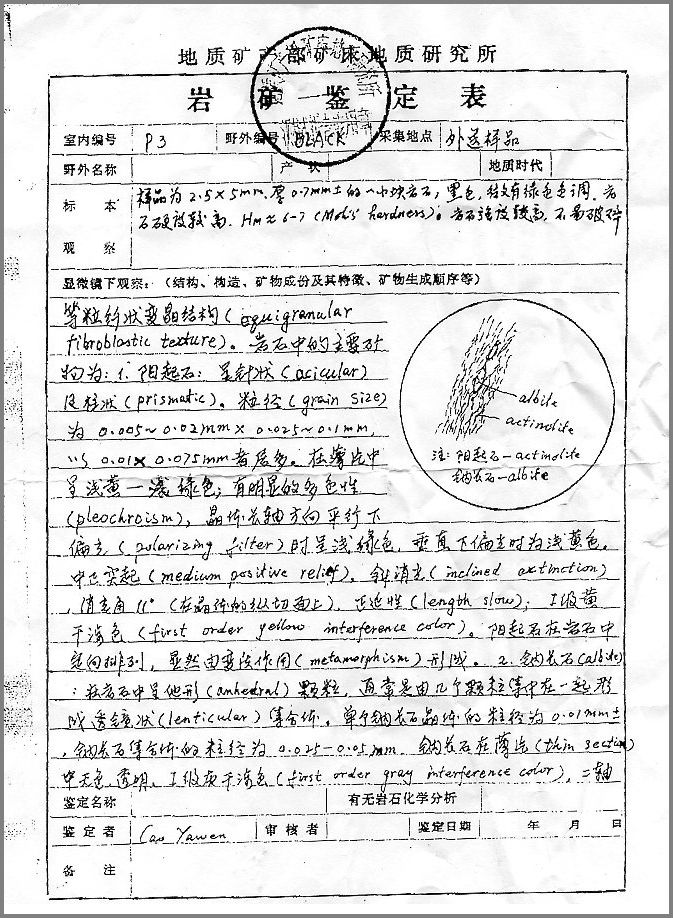 地质矿产部矿床地质研究所
岩矿鉴定表
室内编号 P3 野外编号 BLACK 采集地点 外送样品
野外名称 产状 地质时代
标本 样品为2.5×5mm、厚0.7mm±的一小块岩石,黑色,带有绿色色调。岩
石硬度较高,Hm≈6-7 (Moh's hardness)。岩石强度较高,不易破碎
观察
显微镜下观察:(结构、构造、矿物成份及其特徵、矿物生成顺序等)
等粒纤状变晶结构(equigranular
fibroblastic texture)。岩石中的主要矿
物为:1. 阳起石:呈针状(acicular)
及柱状(prismatic)。粒径(grain size)
为0.005~0.02mm×0.025~0.1mm,
以0.01×0.075mm者居多。在薄片中
呈浅黄—浅绿色;有明显的多色性
(pleochroism),晶体长轴方向平行下
偏光(polarizing filter)时呈浅绿色,垂直下偏光时为浅黄色。
中正突起(medium positive relief),斜消光(inclined extinction)
,消光角11°(在晶体的纵切面上),正延性(length slow);I级黄
干涉色(first order yellow interference color)。阳起石在岩石中
定向排列,显然由变质作用(metamorphism)形成。2. 钠长石(albite)
:在岩石中呈他形(anhedral)颗粒,通常是由几个颗粒集中在一起形
成透镜状(lenticular)集合体。单个钠长石晶体的粒径为0.01mm±
,钠长石集合体的粒径为0.025-0.05mm. 钠长石在薄片(thin section)
中无色、透明,I级灰干涉色(first order gray interference color),二轴
albite
actinolite
注:阳起石-actinolite
钠长石-albite
鉴定名称 有无岩石化学分析
鉴定者 Cao Yawen 审核者 鉴定日期 年 月 日
备注